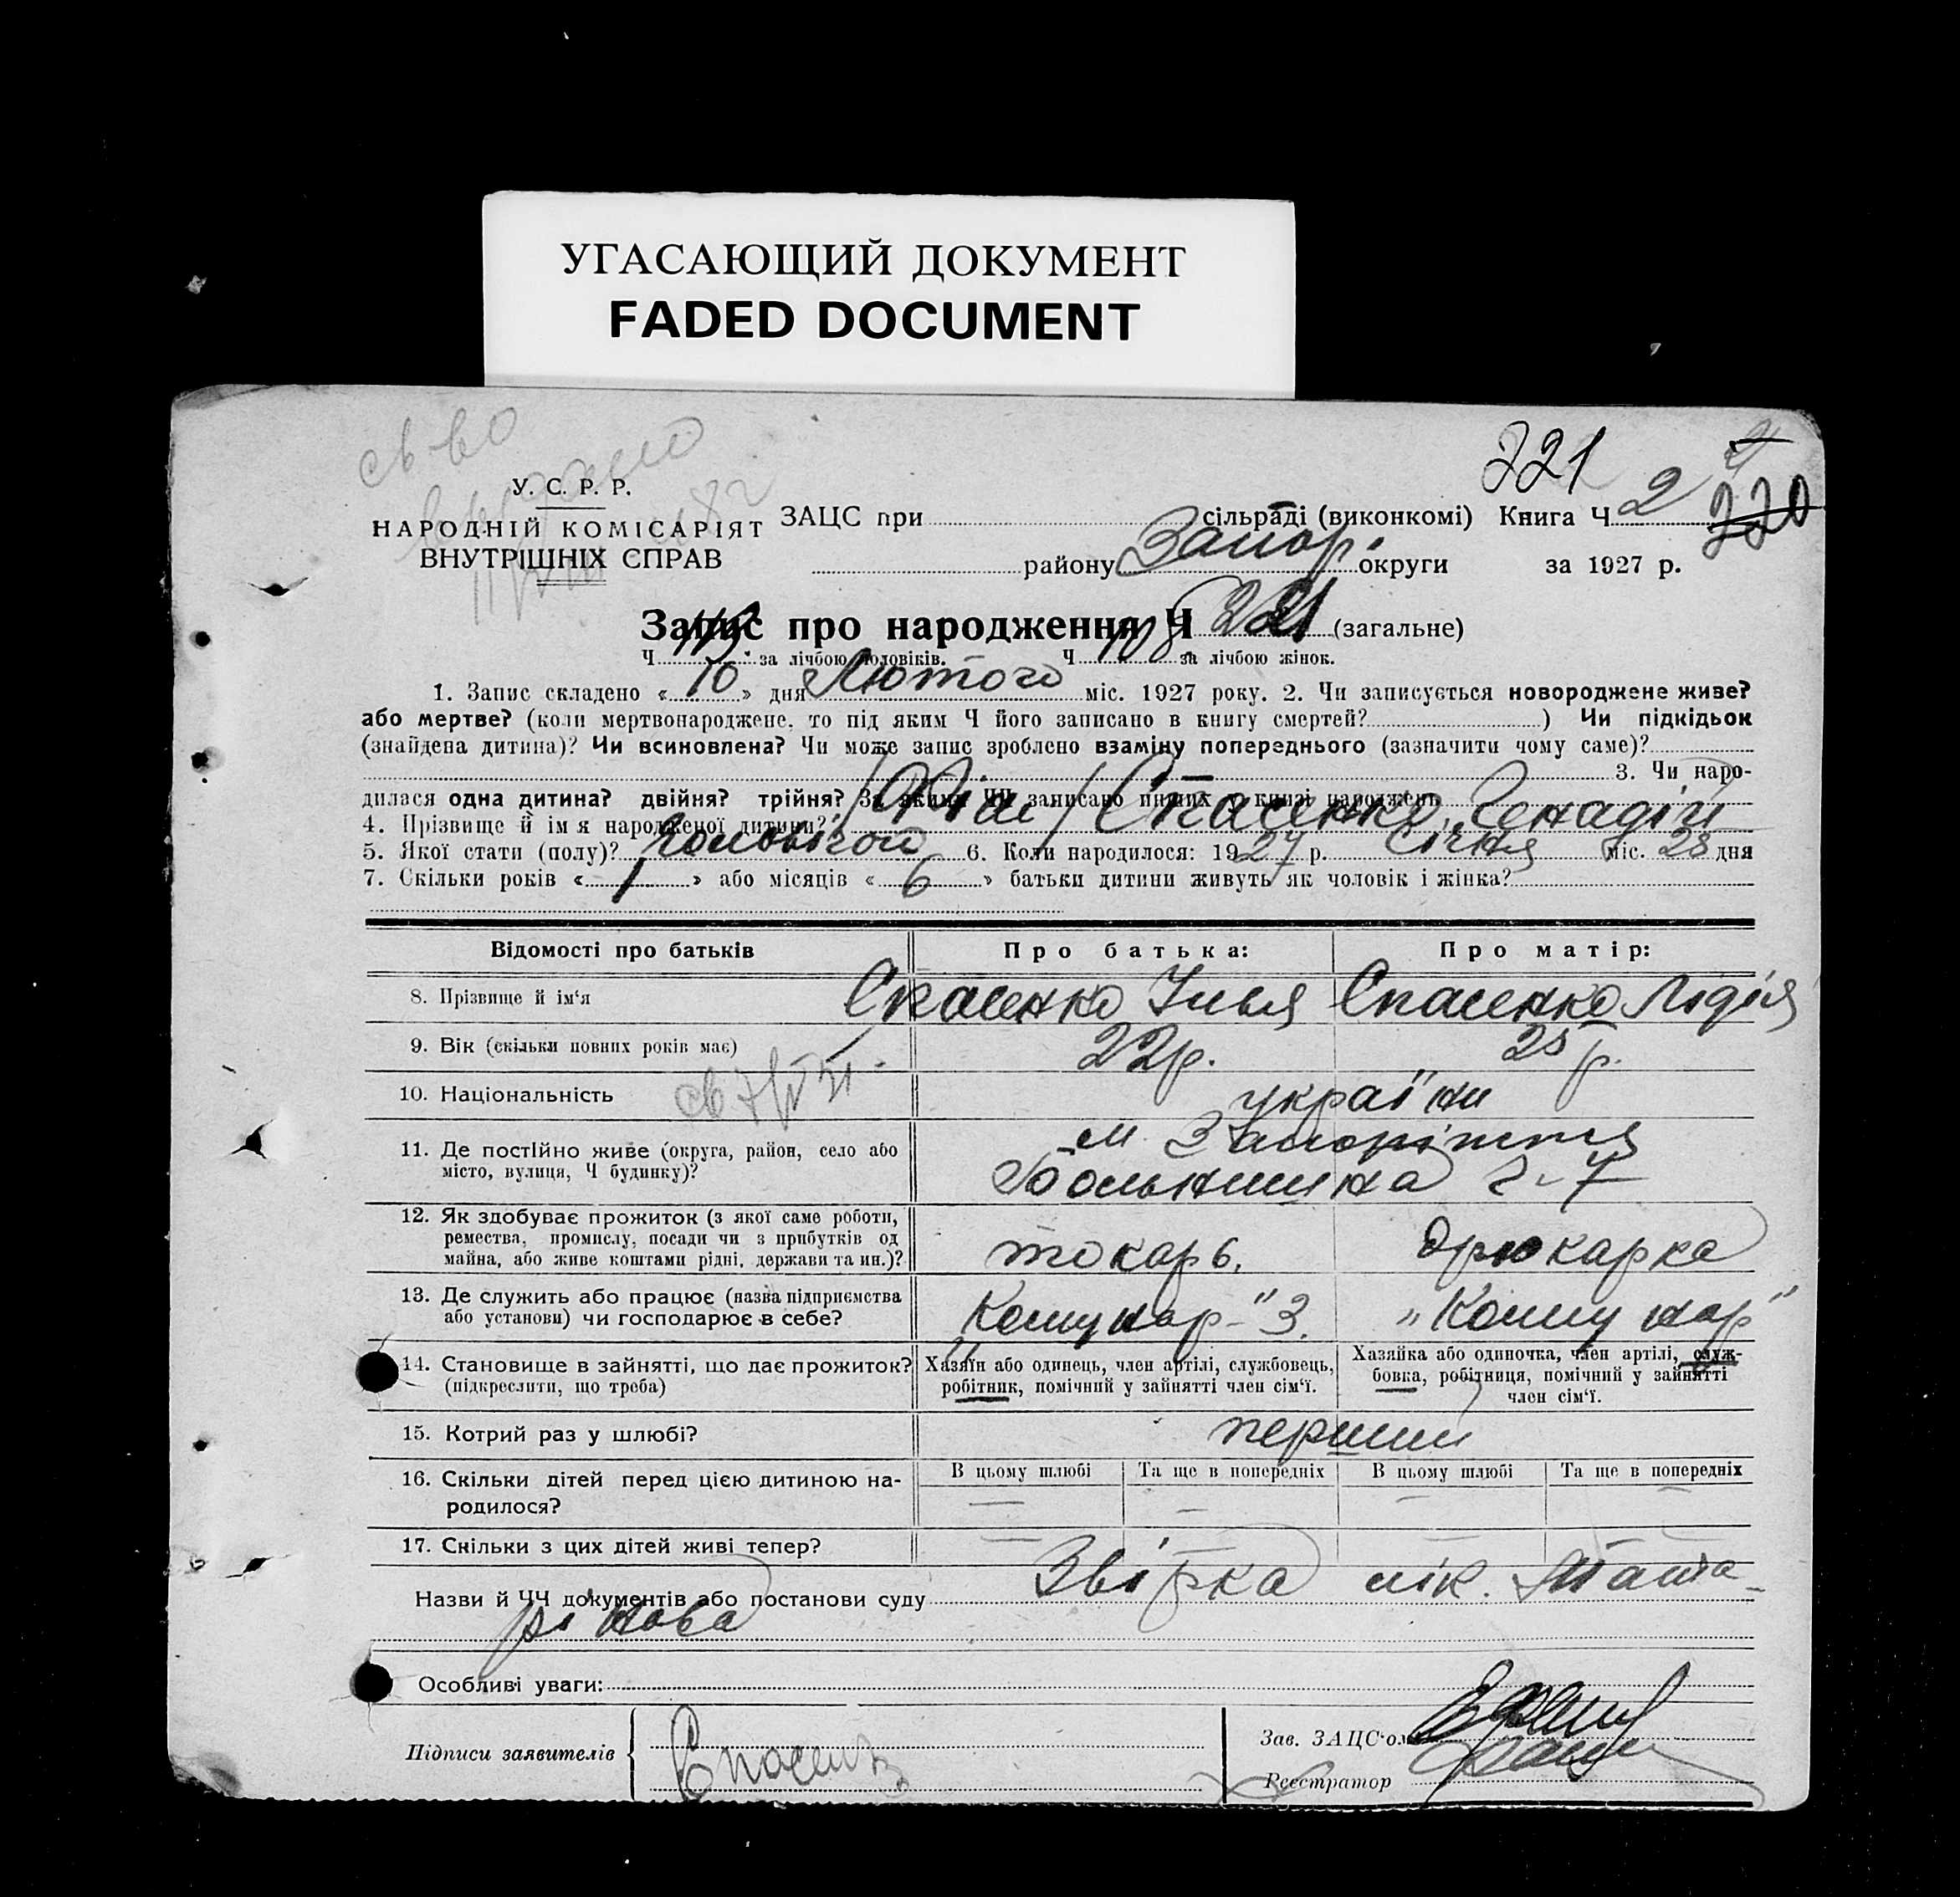 УГАСАЮЩИЙ ДОКУМЕНТ
FADED DOCUMENT
221
У. С. Р. Р.
НАРОДНІЙ КОМІСАРІЯТ
ВНУТРІШНІХ СПРАВ
ЗАЦС при сільраді (виконкомі) Книга Ч 2 220
району Запор. округи за 1927 р.
Запис про народження Ч 221 (загальне)
Ч 113 за лічбою чоловіків. Ч 108 за лічбою жінок.
1. Запис складено « 10 » дня Лютого міс. 1927 року. 2. Чи записується новороджене живе?
або мертве? (коли мертвонароджене, то під яким Ч його записано в книгу смертей? ) Чи підкідьок
(знайдена дитина)? Чи всиновлена? Чи може запис зроблено взаміну попереднього (зазначити чому саме)?
3. Чи наро-
дилася одна дитина? двійня? трійня? За якими ЧЧ записано инших у книзі народжень
4. Прізвище й ім я народженої дитини? Спасенко Генадій
5. Якої стати (полу)? Чоловічого 6. Коли народилося: 1927 р. Січня міс. 28 дня
7. Скільки років « 1 » або місяців « 6 » батьки дитини живуть як чоловік і жінка?
Відомості про батьків Про батька: Про матір:
8. Прізвище й ім‘я Спасенко Ілья Спасенко Лідія
9. Вік (скільки повних років має) 22р. 25 р.
10. Національність україни
11. Де постійно живе (округа, район, село або м. Запоріжжя
місто, вулиця, Ч будинку)? Больнична
12. Як здобуває прожиток (з якої саме роботи,
ремества, промислу, посади чи з прибутків од
майна, або живе коштами рідні, держави та ин.)? токарь. друкарка
13. Де служить або працює (назва підприємства
або установи) чи господарює в себе? Комунар" З. „Комунар"
14. Становище в зайнятті, що дає прожиток?
(підкреслити, що треба)
Хазяїн або одинець, член артілі, службовець,
робітник, помічний у зайнятті член сім‘ї.
Хазяйка або одиночка, член артілі, служ-
бовка, робітниця, помічний у зайнятті
член сім‘ї.
15. Котрий раз у шлюбі? перший
16. Скільки дітей перед цією дитиною на-
родилося?
В цьому шлюбі Та ще в попередніх В цьому шлюбі Та ще в попередніх
17. Скільки з цих дітей живі тепер?
Назви й ЧЧ документів або постанови суду Звірка лік.
Особливі уваги:
Підписи заявителів
Зав. ЗАЦС‘ом
Реєстратор